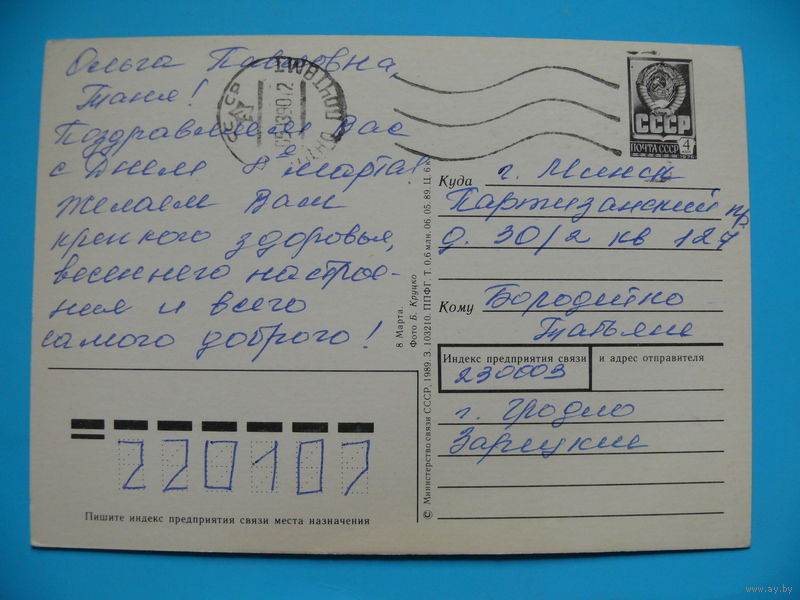 Ольга Павловна,
Таня!
Поздравляем Вас
с Днем 8е марта!
Желаем Вам
крепкого здоровья,
весеннего настрое-
ния и всего
самого доброго!
СССР
ПОЧТА СССР 4
Куда г. Минск
Партизанский пр.
д. 30/2 кв 127
Кому Бородейко
Татьяне
Индекс предприятия связи и адрес отправителя
230003
г. Гродно
Зарецкие
220107
Пишите индекс предприятия связи места назначения
8 Марта.
Фото Б. Круцко
© Министерство связи СССР, 1989. З. 103210. ППФГ. Т. 0,6 млн. 06.05.89. Ц. 6 к.
www.ay.by